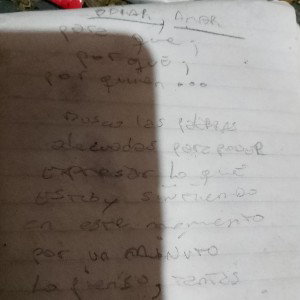 amar, amar
para que,
por qué,
por quien...
Busco las palabras
adecuadas para poder
expresar lo que
estoy sintiendo
en este momento
por un minuto
lo pienso, tantas